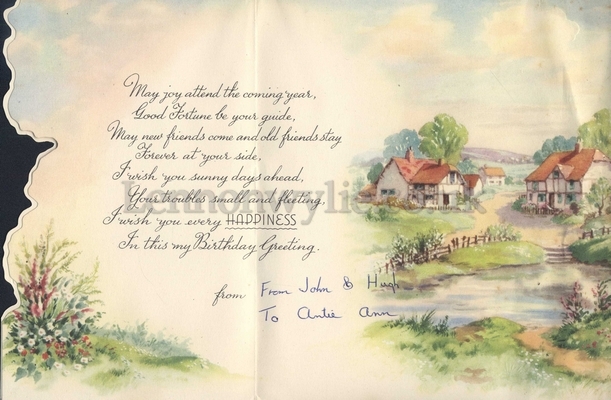 May joy attend the coming year,
Good Fortune be your guide,
May new friends come and old friends stay
Forever at your side,
I wish you sunny days ahead,
Your troubles small and fleeting,
I wish you every HAPPINESS
In this my Birthday Greeting.
from From John & Hugh
To Antie Ann